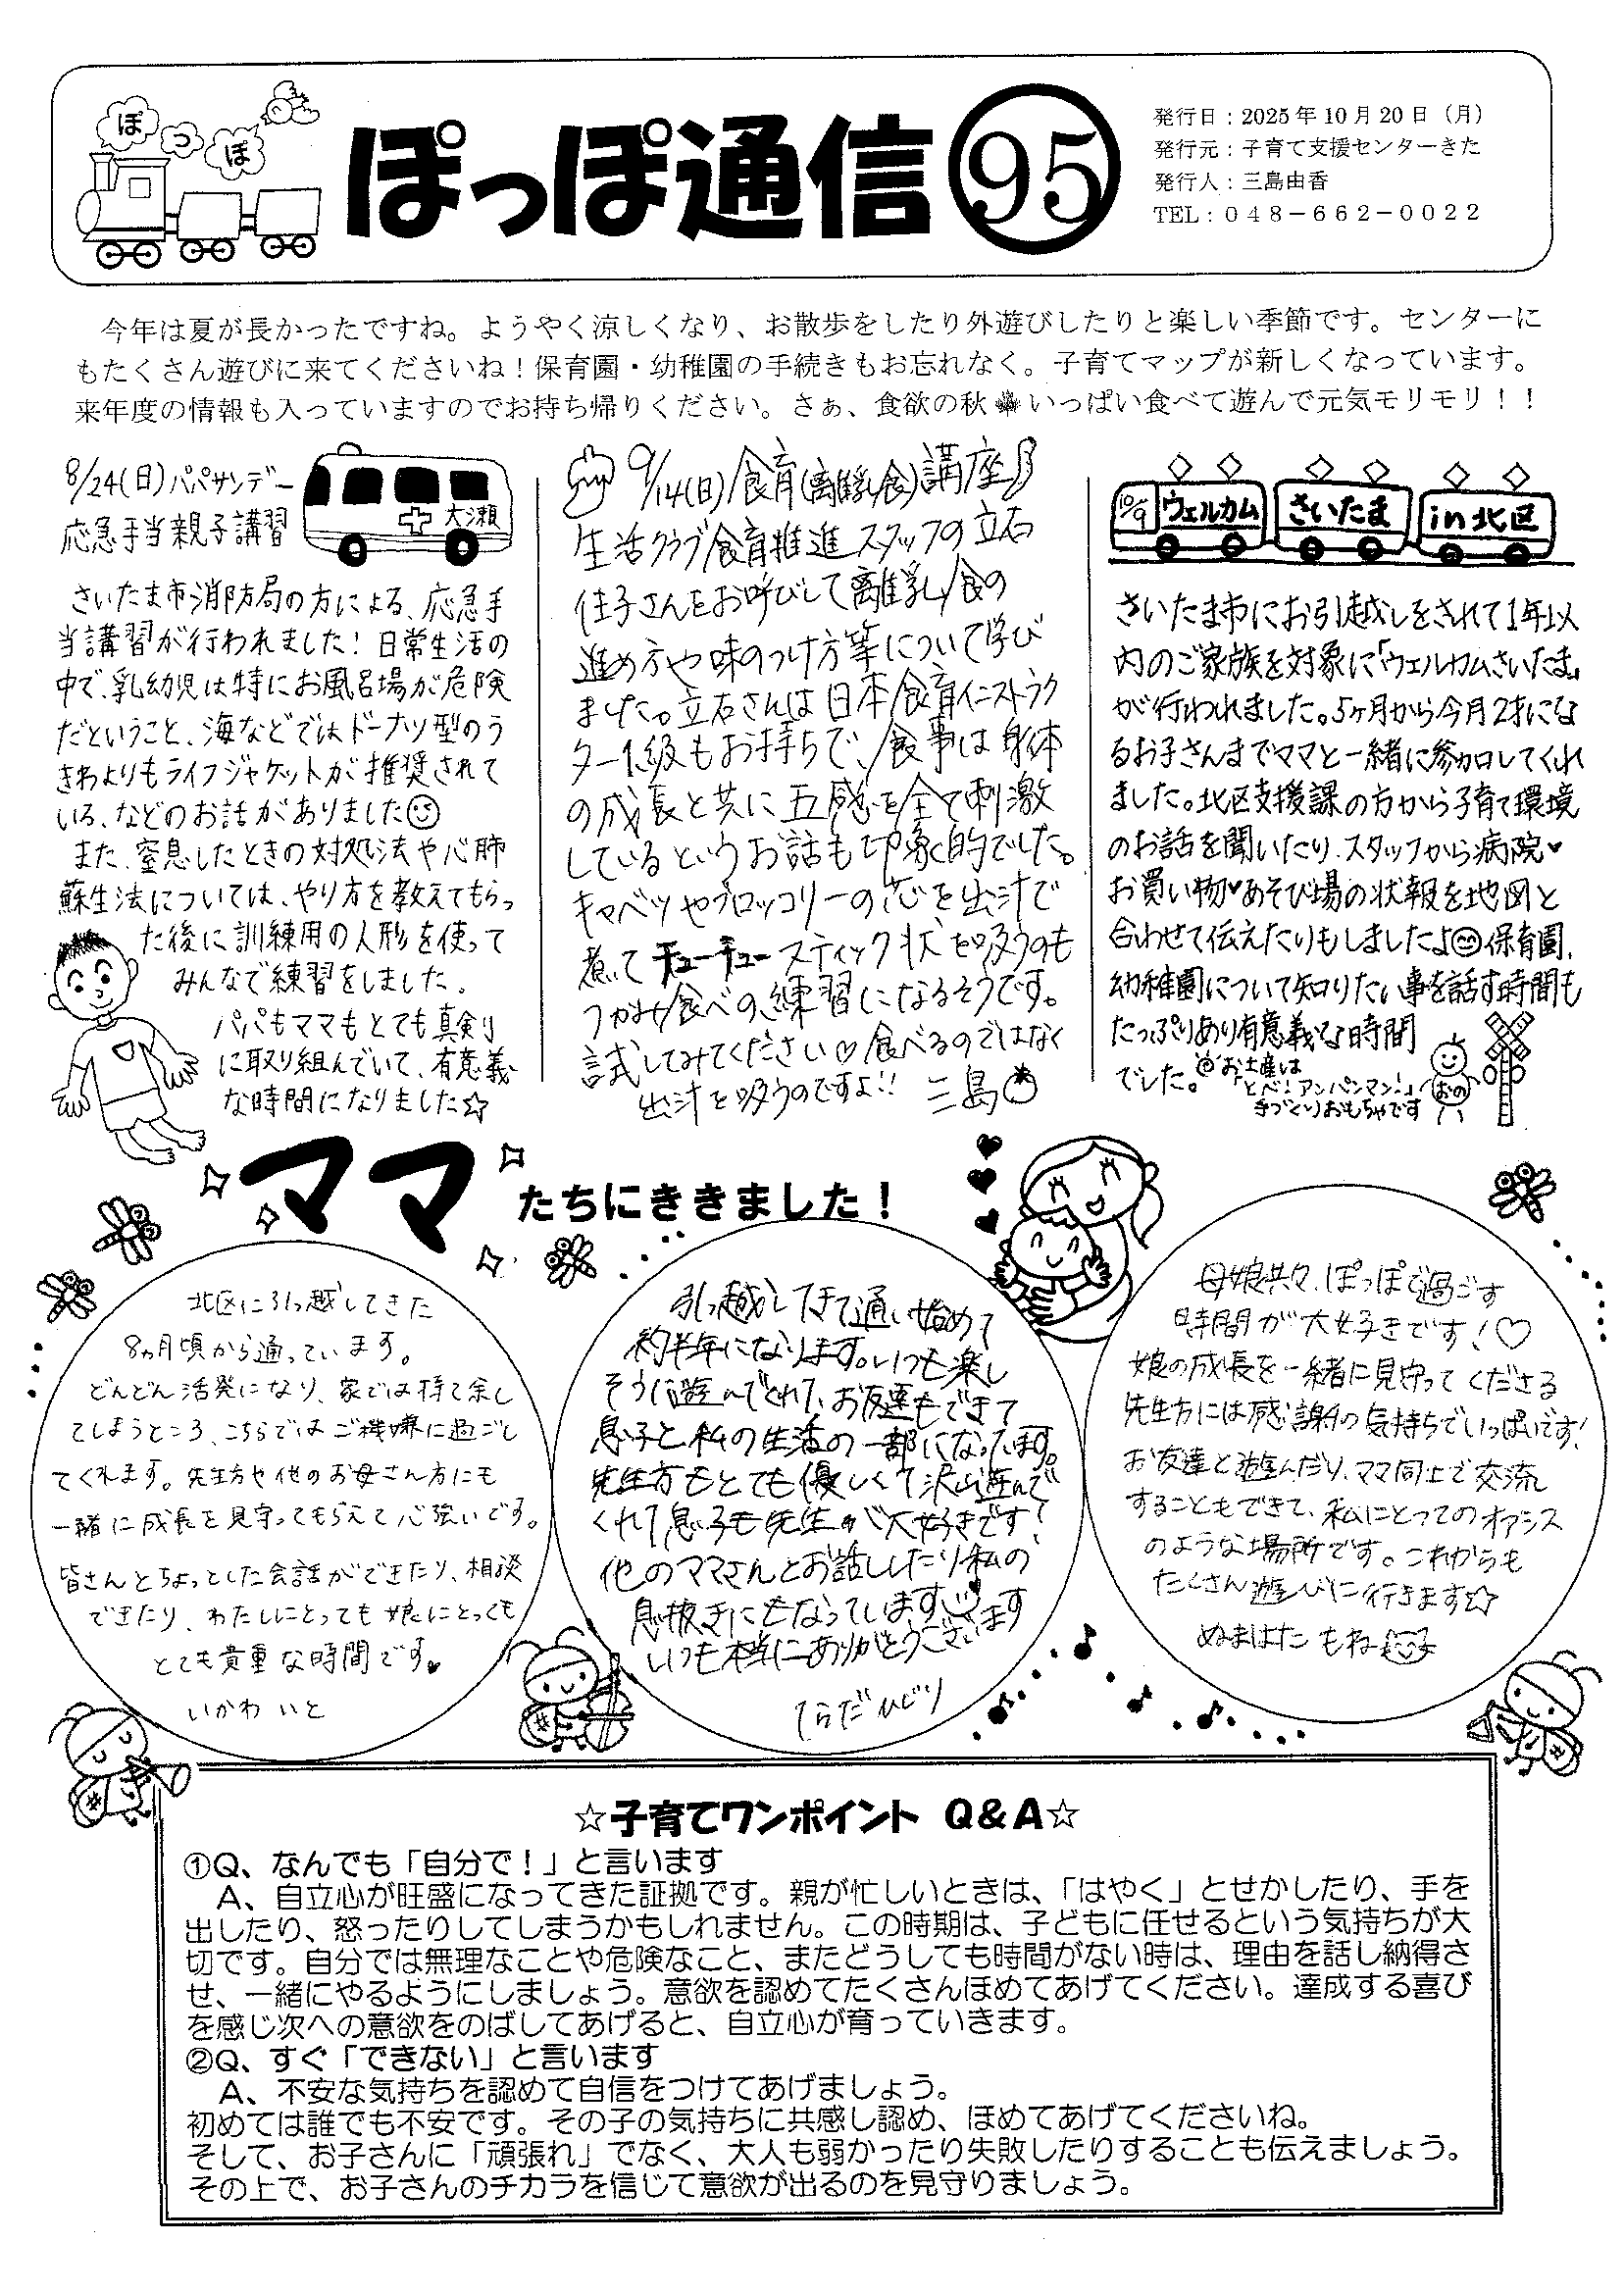 ぽ
っ
ぽ
ぽっぽ通信 95
発行日：2025年10月20日（月）
発行元：子育て支援センターきた
発行人：三島由香
TEL：０４８－６６２－００２２
今年は夏が長かったですね。ようやく涼しくなり、お散歩をしたり外遊びしたりと楽しい季節です。センターに
もたくさん遊びに来てくださいね！保育園・幼稚園の手続きもお忘れなく。子育てマップが新しくなっています。
来年度の情報も入っていますのでお持ち帰りください。さぁ、食欲の秋🍁いっぱい食べて遊んで元気モリモリ！！
8/24(日)パパサンデー
応急手当親子講習
大瀬
さいたま市消防局の方による、応急手
当講習が行われました！日常生活の
中で、乳幼児は特にお風呂場が危険
だということ、海などではドーナツ型のう
きわよりもライフジャケットが推奨されて
いる、などのお話がありました☺
また、窒息したときの対処法や心肺
蘇生法については、やり方を教えてもらっ
た後に訓練用の人形を使って
みんなで練習をしました。
パパもママもとても真剣
に取り組んでいて、有意義
な時間になりました☆
9/14(日)食育(離乳食)講座
生活クラブ食育推進スタッフの立石
佳子さんをお呼びして離乳食の
進め方や味のつけ方等について学び
ました。立石さんは日本食育インストラク
ター1級もお持ちで、食事は身体
の成長と共に五感を全て刺激
しているというお話も印象的でした。
キャベツやブロッコリーの芯を出汁で
煮てチューチュースティック状を吸うのも
つかみ食べの練習になるそうです。
試してみてください♡食べるのではなく
出汁を吸うのですよ!! 三島
10/9 ウェルカム さいたま in北区
さいたま市にお引越しをされて1年以
内のご家族を対象に「ウェルカムさいたま」
が行われました。5ヶ月から今月2才にな
るお子さんまでママと一緒に参加してくれ
ました。北区支援課の方から子育て環境
のお話を聞いたり、スタッフから病院♥
お買い物♥あそび場の状報を地図と
合わせて伝えたりもしましたよ☺保育園、
幼稚園について知りたい事を話す時間も
たっぷりあり有意義な時間
でした。
お土産は
「とべ！アンパンマン！」
手づくりおもちゃです
おの
ママたちにききました！
北区に引っ越してきた
8ヵ月頃から通っています。
どんどん活発になり、家では持て余し
てしまうところ、こちらではご機嫌に過ごし
てくれます。先生方や他のお母さん方にも
一緒に成長を見守ってもらえて心強いです。
皆さんとちょっとした会話ができたり、相談
できたり、わたしにとっても娘にとっても
とても貴重な時間です。♥
いかわ いと
引っ越してきて通い始めて
約半年になります。いつも楽し
そうに遊んでくれて、お友達もできて
息子と私の生活の一部になっています。
先生方もとても優しくて沢山遊んで
くれて息子も先生が大好きです！
他のママさんとお話ししたり私の
息抜きにもなっています
いつも本当にありがとうございます
てらだ ひじり
母娘共々、ぽっぽで過ごす
時間が大好きです！♡
娘の成長を一緒に見守ってくださる
先生方には感謝の気持ちでいっぱいです！
お友達と遊んだり、ママ同士で交流
することもできて、私にとってのオアシス
のような場所です。これからも
たくさん遊びに行きます☆
ぬまはた もね
☆子育てワンポイント Ｑ＆Ａ☆
①Q、なんでも「自分で！」と言います
A、自立心が旺盛になってきた証拠です。親が忙しいときは、「はやく」とせかしたり、手を
出したり、怒ったりしてしまうかもしれません。この時期は、子どもに任せるという気持ちが大
切です。自分では無理なことや危険なこと、またどうしても時間がない時は、理由を話し納得さ
せ、一緒にやるようにしましょう。意欲を認めてたくさんほめてあげてください。達成する喜び
を感じ次への意欲をのばしてあげると、自立心が育っていきます。
②Q、すぐ「できない」と言います
A、不安な気持ちを認めて自信をつけてあげましょう。
初めては誰でも不安です。その子の気持ちに共感し認め、ほめてあげてくださいね。
そして、お子さんに「頑張れ」でなく、大人も弱かったり失敗したりすることも伝えましょう。
その上で、お子さんのチカラを信じて意欲が出るのを見守りましょう。